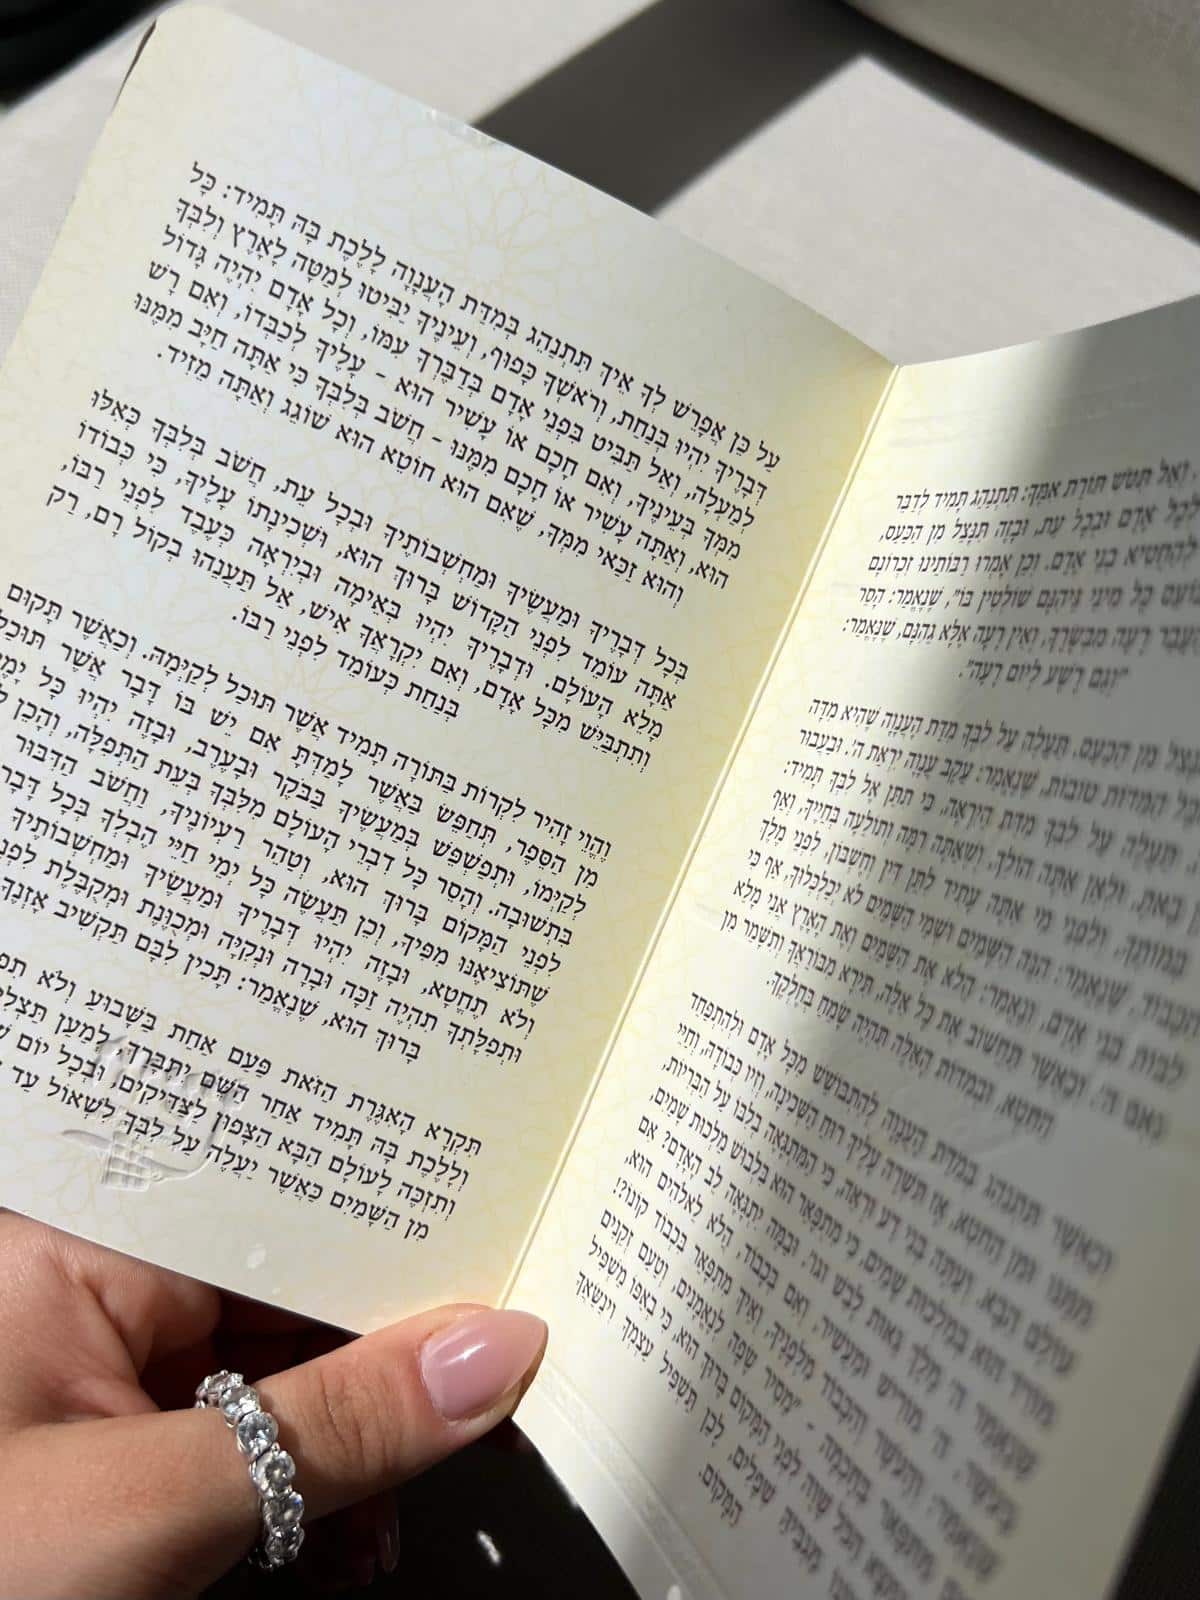 וְאַל תִּטֹּשׁ תּוֹרַת אִמֶּךָ: תִּתְנַהֵג תָּמִיד לְדַבֵּר
לְכָל אָדָם וּבְכָל עֵת, וּבָזֶה תִּנָּצֵל מִן הַכַּעַס,
לְהַחְטִיא בְּנֵי אָדָם. וְכֵן אָמְרוּ רַבּוֹתֵינוּ זִכְרוֹנָם
כָּל מִינֵי גֵיהִנֹּם שׁוֹלְטִין בּוֹ", שֶׁנֶּאֱמַר: הָסֵר
רָעָה מִבְּשָׂרֶךָ, וְאֵין רָעָה אֶלָּא גֵהִנֹּם, שֶׁנֶּאֱמַר:
"וְגַם רָשָׁע לְיוֹם רָעָה".
מִן הַכַּעַס, תַּעֲלֶה עַל לִבְּךָ מִדַּת הָעֲנָוָה שֶׁהִיא מִדָּה
הַמִּדּוֹת טוֹבוֹת, שֶׁנֶּאֱמַר: עֵקֶב עֲנָוָה יִרְאַת ה'. וּבַעֲבוּר
תַּעֲלֶה עַל לִבְּךָ מִדַּת הַיִּרְאָה, כִּי תִתֵּן אֶל לִבְּךָ תָּמִיד:
בָּאתָ, וּלְאָן אַתָּה הוֹלֵךְ, וְשֶׁאַתָּה רִמָּה וְתוֹלֵעָה בְּחַיֶּיךָ, וְאַף
בְּמוֹתָךְ, וְלִפְנֵי מִי אַתָּה עָתִיד לִתֵּן דִּין וְחֶשְׁבּוֹן, לִפְנֵי מֶלֶךְ
הַכָּבוֹד, שֶׁנֶּאֱמַר: הִנֵּה הַשָּׁמַיִם וּשְׁמֵי הַשָּׁמַיִם לֹא יְכַלְכְּלוּךָ, אַף כִּי
לִבּוֹת בְּנֵי אָדָם, וְנֶאֱמַר: הֲלֹא אֶת הַשָּׁמַיִם וְאֶת הָאָרֶץ אֲנִי מָלֵא
נְאֻם ה'. וְכַאֲשֶׁר תַּחֲשׁוֹב אֶת כָּל אֵלֶּה, תִּירָא מִבּוֹרַאֲךָ וְתִשָּׁמֵר מִן
הַחֵטְא, וּבַמִּדּוֹת הָאֵלֶּה תִּהְיֶה שָׂמֵחַ בְּחֶלְקֶךָ.
וְכַאֲשֶׁר תִּתְנַהֵג בְּמִדַּת הָעֲנָוָה לְהִתְבּוֹשֵׁשׁ מִכָּל אָדָם וּלְהִתְפַּחֵד
מִמֶּנּוּ וּמִן הַחֵטְא, אָז תִּשְׁרֶה עָלֶיךָ רוּחַ הַשְּׁכִינָה, וְזִיו כְּבוֹדָהּ, וְחַיֵּי
עוֹלָם הַבָּא. וְעַתָּה בְּנִי דַּע וּרְאֵה, כִּי הַמִּתְגָּאֶה בְּלִבּוֹ עַל הַבְּרִיּוֹת,
מוֹרֵד הוּא בְּמַלְכוּת שָׁמַיִם, כִּי מִתְפָּאֵר הוּא בִּלְבוּשׁ מַלְכוּת שָׁמַיִם,
שֶׁנֶּאֱמַר ה' מָלָךְ גֵּאוּת לָבֵשׁ וגו'. וּבַמֶּה יִתְגָּאֶה לֵב הָאָדָם? אִם
בְּעֹשֶׁר, ה' מוֹרִישׁ וּמַעֲשִׁיר, וְאִם בְּכָבוֹד, הֲלֹא לֵאלֹהִים הוּא,
שֶׁנֶּאֱמַר: וְהָעֹשֶׁר וְהַכָּבוֹד מִלְּפָנֶיךָ, וְאֵיךְ מִתְפָּאֵר בִּכְבוֹד קוֹנוֹ?!
מִתְפָּאֵר בְּחָכְמָה - "מֵסִיר שָׂפָה לְנֶאֱמָנִים, וְטַעַם זְקֵנִים
הַכֹּל שָׁוֶה לִפְנֵי הַמָּקוֹם בָּרוּךְ הוּא, כִּי בְאַפּוֹ מַשְׁפִּיל
מַגְבִּיהַּ שְׁפָלִים, לָכֵן תַּשְׁפִּיל עַצְמְךָ וִינַשְּׂאֲךָ
הַמָּקוֹם.
עַל כֵּן אֲפָרֵשׁ לְךָ אֵיךְ תִּתְנַהֵג בְּמִדַּת הָעֲנָוָה לָלֶכֶת בָּהּ תָּמִיד: כָּל
דְּבָרֶיךָ יִהְיוּ בְּנַחַת, וְרֹאשְׁךָ כָּפוּף, וְעֵינֶיךָ יַבִּיטוּ לְמַטָּה לָאָרֶץ וְלִבְּךָ
לְמַעְלָה, וְאַל תַּבִּיט בִּפְנֵי אָדָם בְּדַבֶּרְךָ עִמּוֹ, וְכָל אָדָם יִהְיֶה גָּדוֹל
מִמְּךָ בְּעֵינֶיךָ, וְאִם חָכָם אוֹ עָשִׁיר הוּא - עָלֶיךָ לְכַבְּדוֹ, וְאִם רָשׁ
הוּא, וְאַתָּה עָשִׁיר אוֹ חָכָם מִמֶּנּוּ - חֲשֹׁב בְּלִבְּךָ כִּי אַתָּה חַיָּב מִמֶּנּוּ
וְהוּא זַכַּאי מִמְּךָ, שֶׁאִם הוּא חוֹטֵא הוּא שׁוֹגֵג וְאַתָּה מֵזִיד.
בְּכָל דְּבָרֶיךָ וּמַעֲשֶׂיךָ וּמַחְשְׁבוֹתֶיךָ וּבְכָל עֵת, חֲשֹׁב בְּלִבְּךָ כְּאִלּוּ
אַתָּה עוֹמֵד לִפְנֵי הַקָּדוֹשׁ בָּרוּךְ הוּא, וּשְׁכִינָתוֹ עָלֶיךָ, כִּי כְּבוֹדוֹ
מָלֵא הָעוֹלָם. וּדְבָרֶיךָ יִהְיוּ בְּאֵימָה וּבְיִרְאָה כְּעֶבֶד לִפְנֵי רַבּוֹ,
וְתִתְבַּיֵּשׁ מִכָּל אָדָם, וְאִם יִקְרָאֲךָ אִישׁ, אַל תַּעֲנֵהוּ בְּקוֹל רָם, רַק
בְּנַחַת כְּעוֹמֵד לִפְנֵי רַבּוֹ.
וֶהֱוֵי זָהִיר לִקְרוֹת בַּתּוֹרָה תָּמִיד אֲשֶׁר תּוּכַל לְקַיְּמָהּ. וְכַאֲשֶׁר תָּקוּם
מִן הַסֵּפֶר, תְּחַפֵּשׂ בַּאֲשֶׁר לָמַדְתָּ אִם יֵשׁ בּוֹ דָּבָר אֲשֶׁר תּוּכַל
לְקַיְּמוֹ, וּתְפַשְׁפֵּשׁ בְּמַעֲשֶׂיךָ בַּבֹּקֶר וּבָעֶרֶב, וּבָזֶה יִהְיוּ כָּל
בִּתְשׁוּבָה. וְהָסֵר כָּל דִּבְרֵי הָעוֹלָם מִלִּבְּךָ בְּעֵת הַתְּפִלָּה, וְהָכֵן
לִפְנֵי הַמָּקוֹם בָּרוּךְ הוּא, וְטַהֵר רַעְיוֹנֶיךָ, וַחֲשֹׁב הַדִּבּוּר
שֶׁתּוֹצִיאֶנּוּ מִפִּיךָ, וְכֵן תַּעֲשֶׂה כָּל יְמֵי חַיֵּי הֶבְלְךָ בְּכָל דָּבָר
וְלֹא תֶחֱטָא, וּבָזֶה יִהְיוּ דְּבָרֶיךָ וּמַעֲשֶׂיךָ וּמַחְשְׁבוֹתֶיךָ
וּתְפִלָּתְךָ תִהְיֶה זַכָּה וּבָרָה וּנְקִיָּה וּמְכֻוֶּנֶת וּמְקֻבֶּלֶת
בָּרוּךְ הוּא, שֶׁנֶּאֱמַר: תָּכִין לִבָּם תַּקְשִׁיב אָזְנֶךָ
תִּקְרָא הָאִגֶּרֶת הַזֹּאת פַּעַם אַחַת בַּשָּׁבוּעַ וְלֹא
וְלָלֶכֶת בָּהּ תָּמִיד אַחַר הַשֵּׁם יִתְבָּרַךְ, לְמַעַן
וְתִזְכֶּה לָעוֹלָם הַבָּא הַצָּפוּן לַצַּדִּיקִים, וּבְכָל יוֹם
מִן הַשָּׁמַיִם כַּאֲשֶׁר יַעֲלֶה עַל לִבְּךָ לִשְׁאוֹל עַד